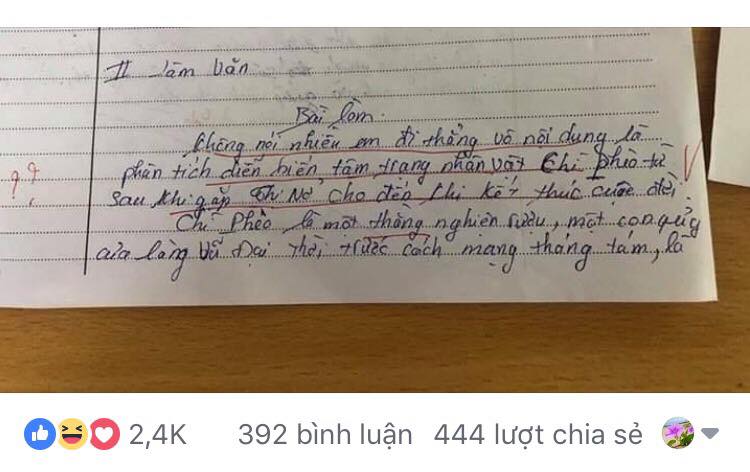 II Làm Văn
Bài làm
Không nói nhiều em đi thẳng vô nội dung là
phân tích diễn biến tâm trạng nhân vật Chí phèo từ
sau khi gặp Thị Nở cho đến khi kết thúc cuộc đời.
Chí Phèo là một thằng nghiện rượu, một con quỷ
của làng Vũ Đại thời trước cách mạng tháng tám, là
??
2,4K 392 bình luận 444 lượt chia sẻ